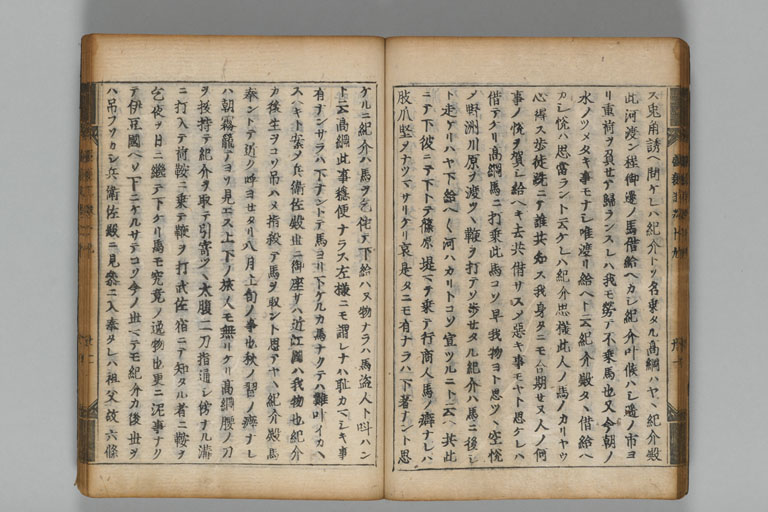 ス兎角誘ヘ問ケレハ紀介トソ名乗タル高綱ハヤヽ紀介殿
此河渡ン程御邊ノ馬借給ヘカシ紀介叶候ハシ遥ノ市ヨ
リ重荷ヲ負セテ歸ランスレハ我モ勞テ不乗馬也又今朝ノ
水ノツメタキ事モナシ唯渡リ給ヘト云紀介殿タヽ借給ヘ
カシ悦ハ思當ラント云ケレハ紀介思様此人ノ馬ノカリヤウ
心得ス歩徒跣ニテ誰共知ス我身タニモ合期セヌ人ノ何
事ノ悦ヲ賀シ給ヘキ去共借サスメ惡キ事モヤト思ケレハ
借テケリ高綱馬ニ打乗此馬コソ早我物ヨト思ツヽ空悦
メ野洲川原ヲ渡ツヽ鞭ヲ打テソ歩セタル紀介ハ馬ニ後シ
ト走ケリハヤ下給ヘ〱河ハカリトコソ宣ツルニト云ヘ共此
ニテ下彼ニテ下トテ篠原堤マテ乗テ行商人馬ノ癖ナレハ
肢爪堅ヲナツマサリケリ哀是タニモ有ナラハ下著ナント思
ケルニ紀介ハ馬ヲ乞侘テ下給ハヌ物ナラハ馬盗人ト叫ハン
ト云高綱此事穏便ナラス左様ニモ謂レナハ耻カマシキ事
有ナンサラハ下ナントテ馬ヨリ下ケルカ馬ナクテハ難叶イカヽ
スヘキト案メ兵衛佐殿世ニ御座サハ近江國ハ我物也紀介
カ後生ヲコソ弔ハメ指殺テ馬ヲ取ント思テヤヽ紀介殿馬
奉ントテ近ク呼ヨセタリ八月上旬ノ事也秋ノ習ノ癖ナレ
ハ朝霧籠テヨリ見エス上下ノ旅人モ無リケリ高綱腰ノ刀
ヲ抜持テ紀介ヲ取テ引寄ツヽ太腹二刀指通シ傍ナル溝
ニ打入テ荷鞍ニ乗テ鞭ヲ打武佐宿ニテ知タル者ニ鞍ヲ
乞夜ヲ日ニ繼テ下ケリ馬モ究竟ノ逸物也更ニ泥事ナク
テ伊豆國ヘソ下ニケルサテコソ今ノ世マテモ紀介カ後世ヲ
ハ弔フソカシ兵衛佐殿ニ見參ニ入奉タレハ祖父故六條